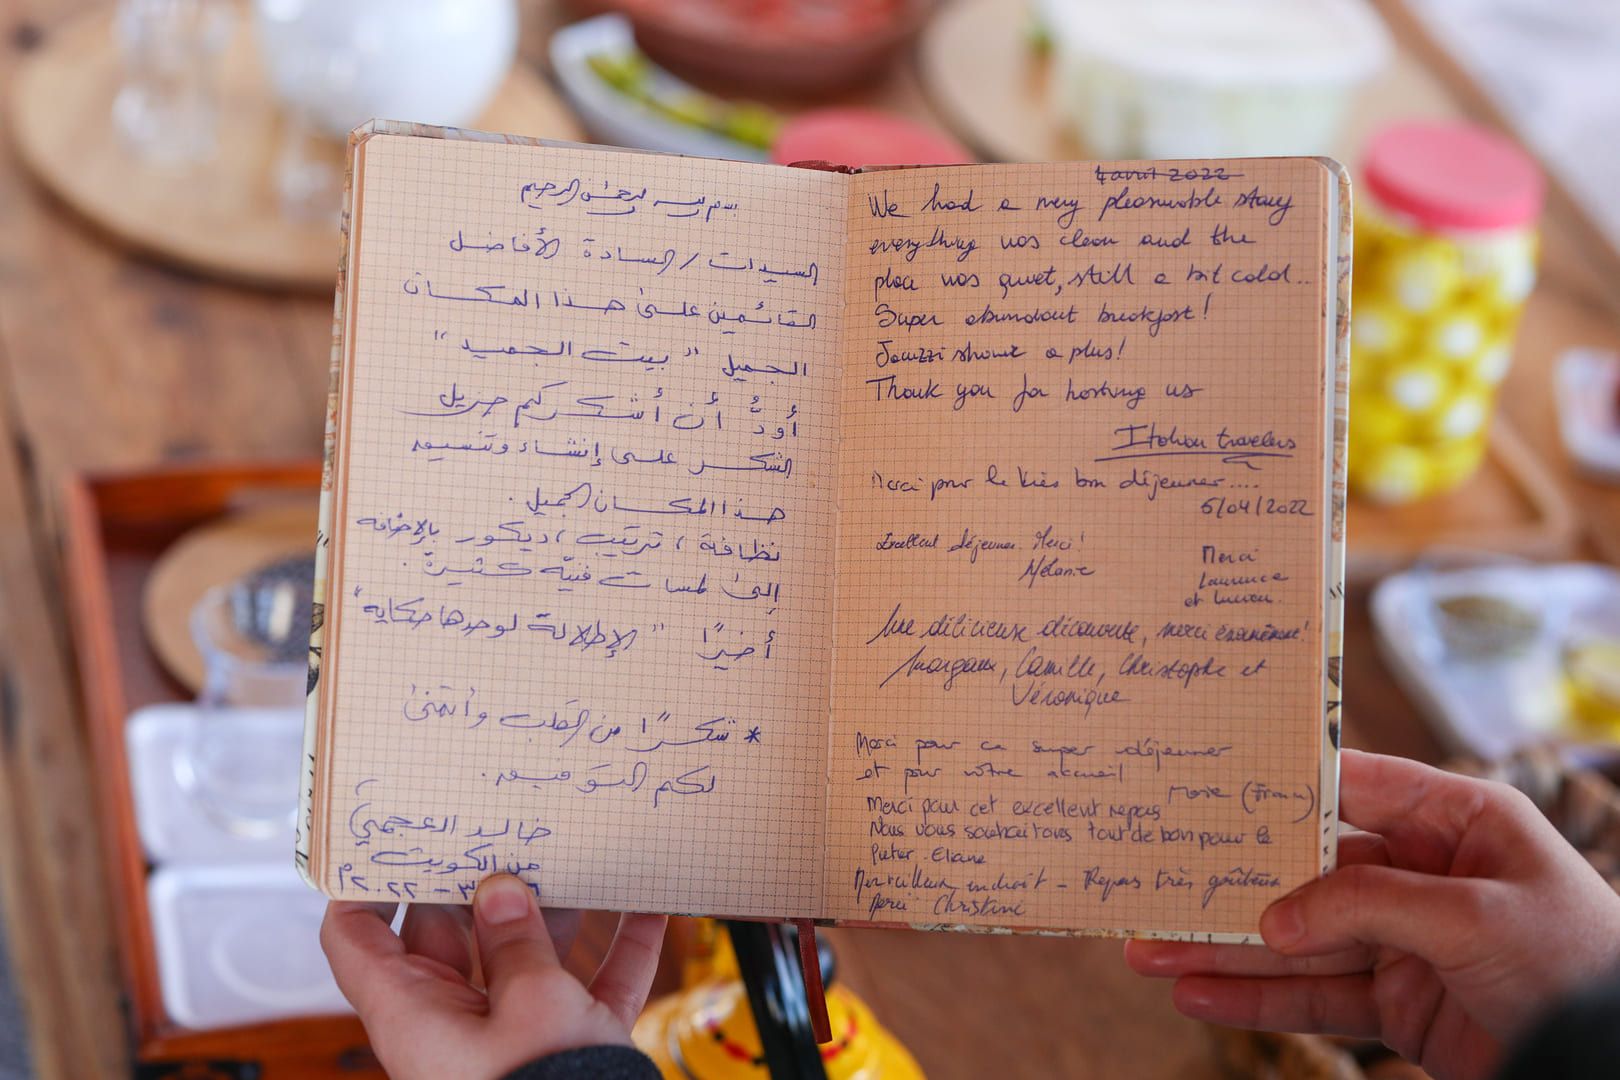 بسم الله الرحمن الرحيم
السيدات / السادة الأفاضل
القائمين على هذا المكان
الجميل "بيت الجميد"
أودُّ أن أشكركم جزيل
الشكر على إنشاء وتنسيق
هذا المكان الجميل.
نظافة، ترتيب، ديكور بالإضافة
إلى لمسات فنيّة كثيرة.
أخيرًا "الإطلالة لوحدها حكاية"
* شكرًا من القلب وأتمنى
لكم التوفيق.
خالد العجمي
من الكويت
٢٠٢٢م
4 avril 2022
We had a very pleasurable stay
everything was clean and the
place was quiet, still a bit cold...
Super abundant breakfast!
Jacuzzi shower a plus!
Thank you for hosting us
Italian travelers
Merci pour le très bon déjeuner....
5/04/2022
Excellent déjeuner. Merci!
Mélanie
Merci
Laurence
et Lucien.
Une délicieuse découverte, merci énormément!
Morgane, Camille, Christophe et
Véronique
Merci pour ce super déjeuner
et pour votre accueil
Marie (France)
Merci pour cet excellent repas
Nous vous souhaitons tout de bon pour le
Eliane
Merveilleux endroit - Repas très goûteux
Merci Christine